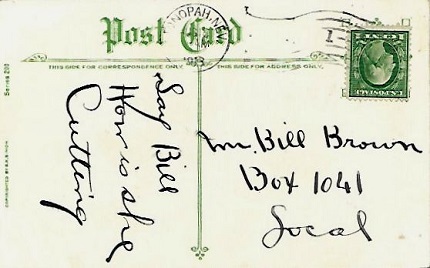 Post Card
TONOPAH, NEV.
AM
1913
THIS SIDE FOR CORRESPONDENCE ONLY
THIS SIDE FOR ADDRESS ONLY
Series 200
Say Bill
How is she
Cutting
Mr. Bill Brown
Box 1041
Local
1 CENT 1